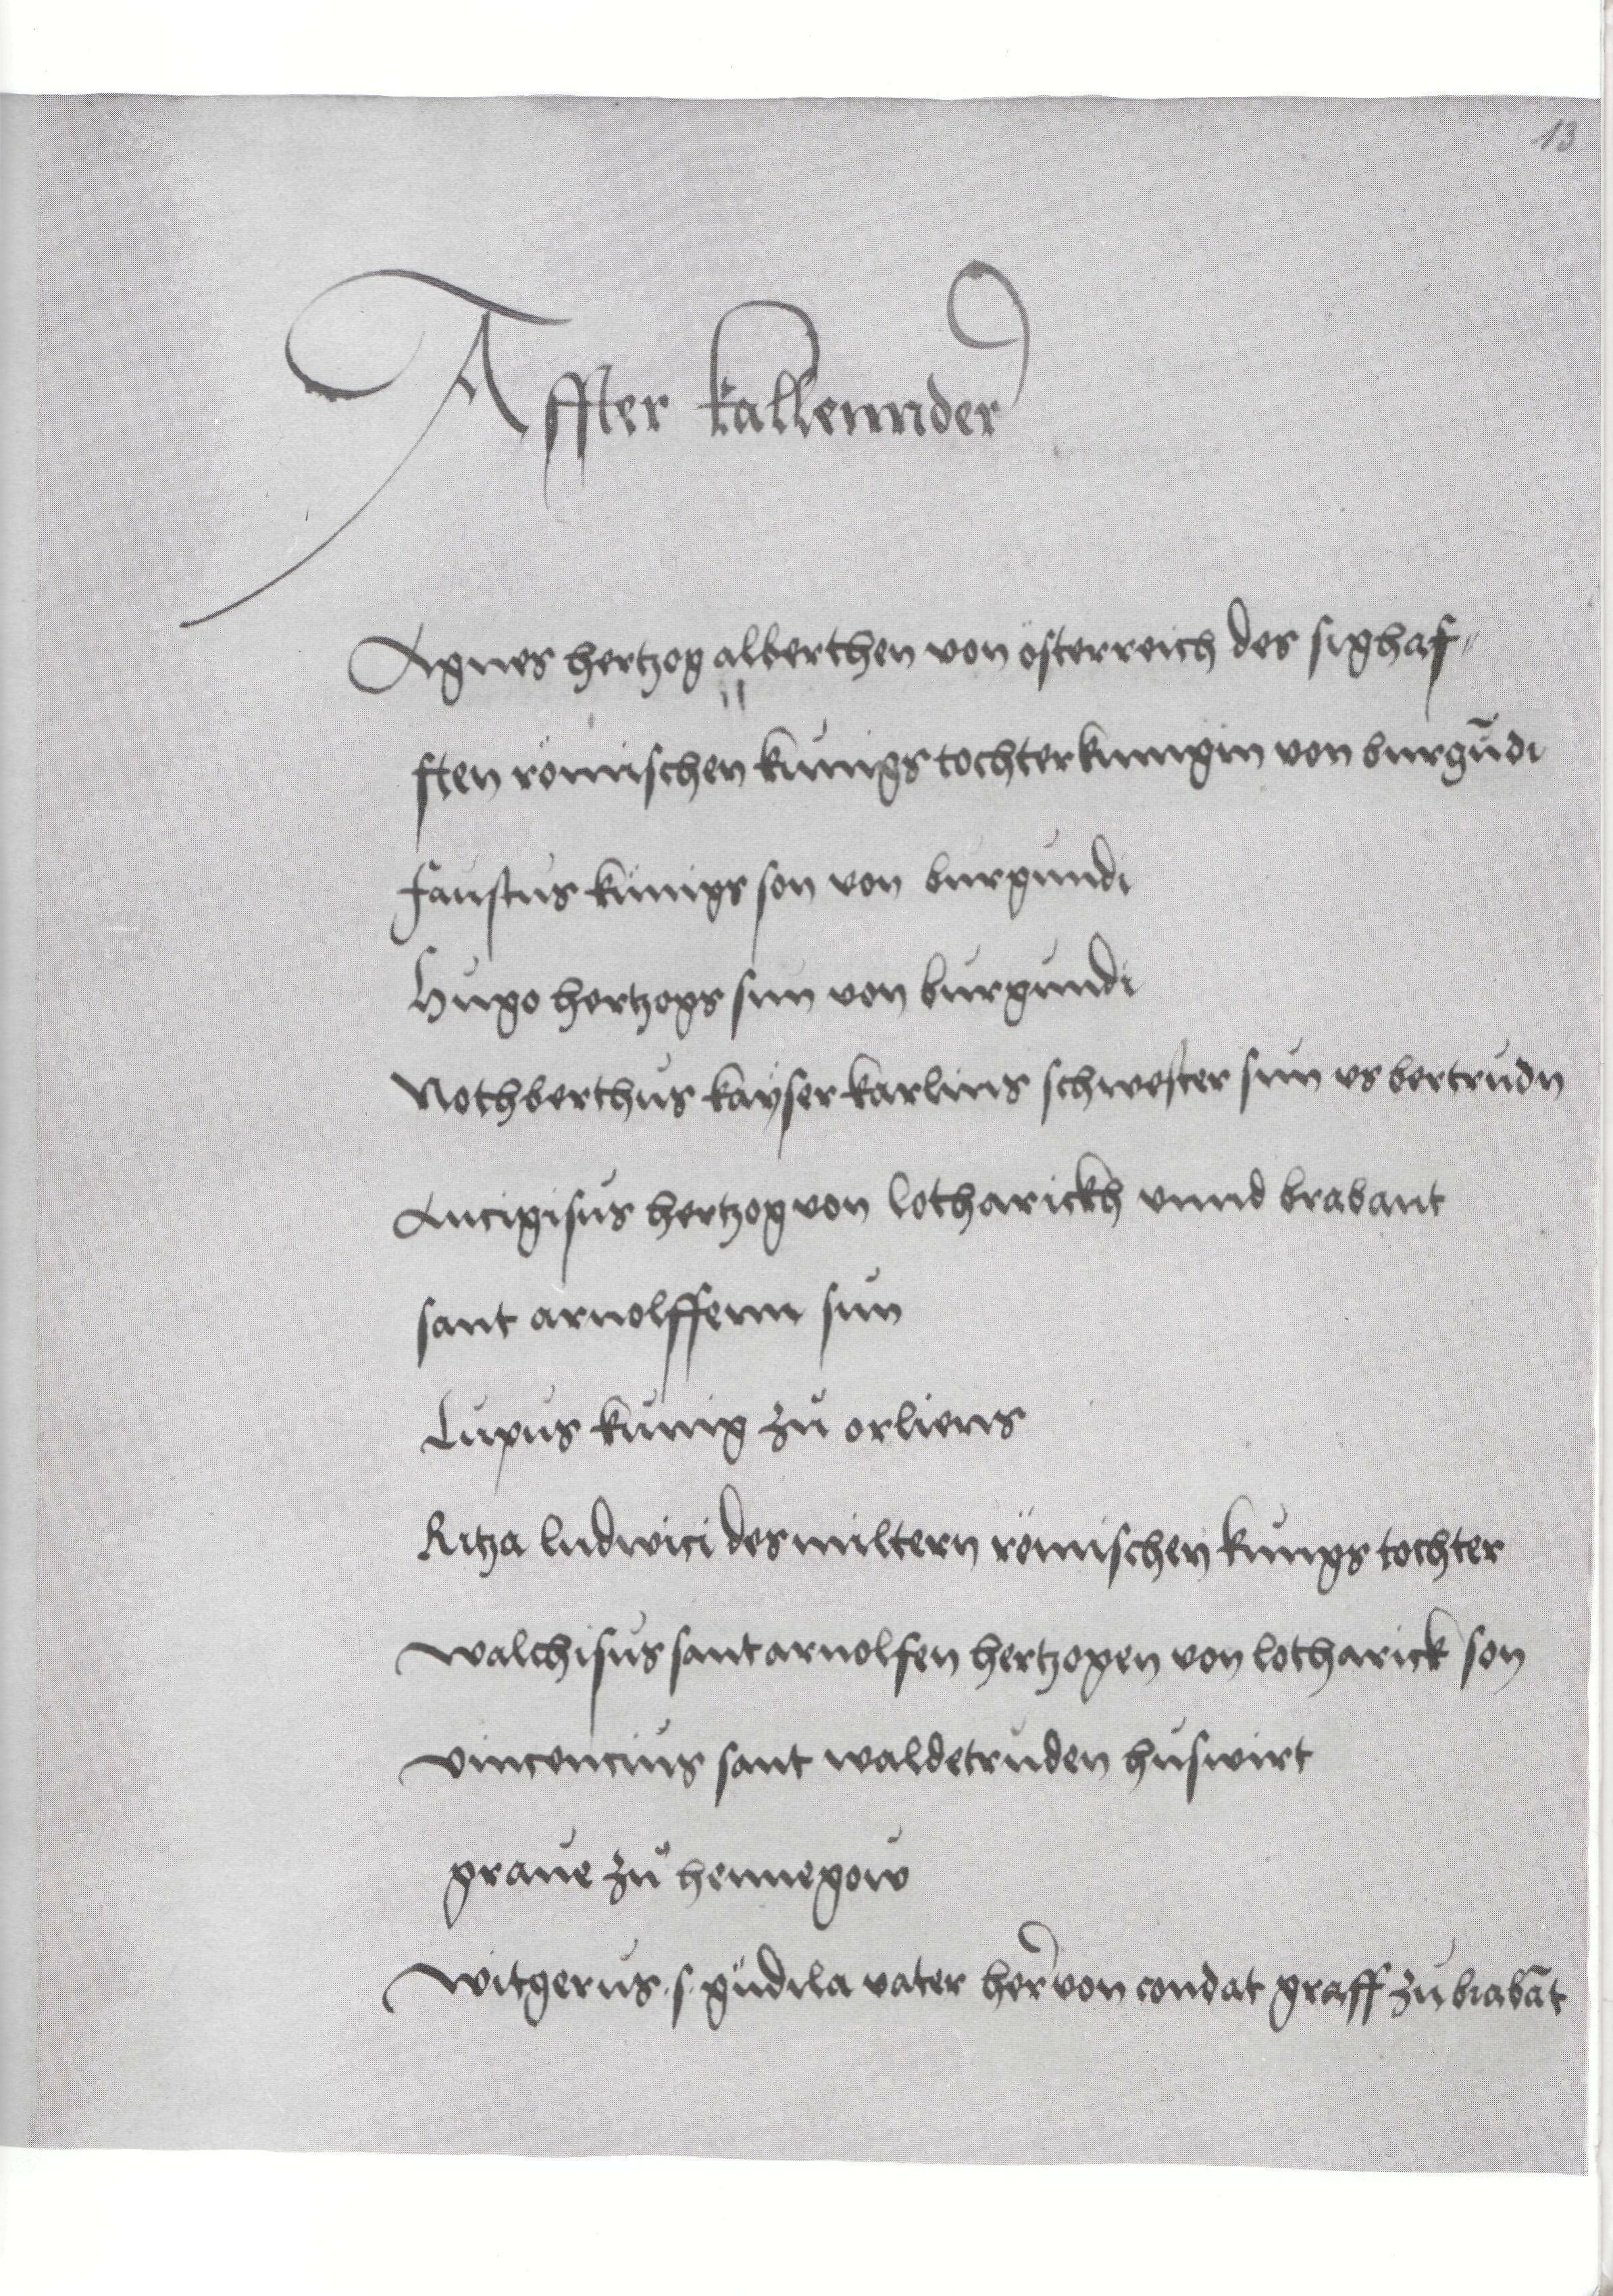 13
Affter kallennder
Agnes hertzog alberthen von österreich des sighaf〃
ften römischen kunigs tochter kunigin von burgūdi
faustus künigs son von burgundi
Hugo hertzogs sun von burgundi
Rothberthus kayser karlins schwester sun vs bertrudn
Ancigisus hertzog von lotharickh vnnd brabant
sant arnolffenn sun
Lupus kunig zů orliens
Ritza ludwici des miltern römischen kungs tochter
walchisus sant arnolfen hertzogen von lotharick son
vincencius sant waldetruden huswirt
graue zů hennegow
witgerus .s. gudila vater her von condat graff zu brabāt